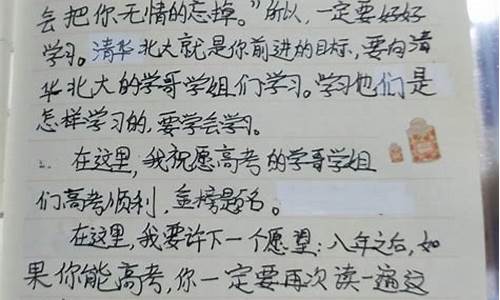 会把你无情的忘掉。”所以，一定要好好
学习。清华北大就是你前进的目标，要向清
华北大的学哥学姐们学习。学习他们是
怎样学习的，要学会学习。
在这里，我祝愿高考的学哥学姐
们高考顺利，金榜题名。
在这里，我要许下一个愿望：八年之后，如
果你能高考，你一定要再次读一遍这